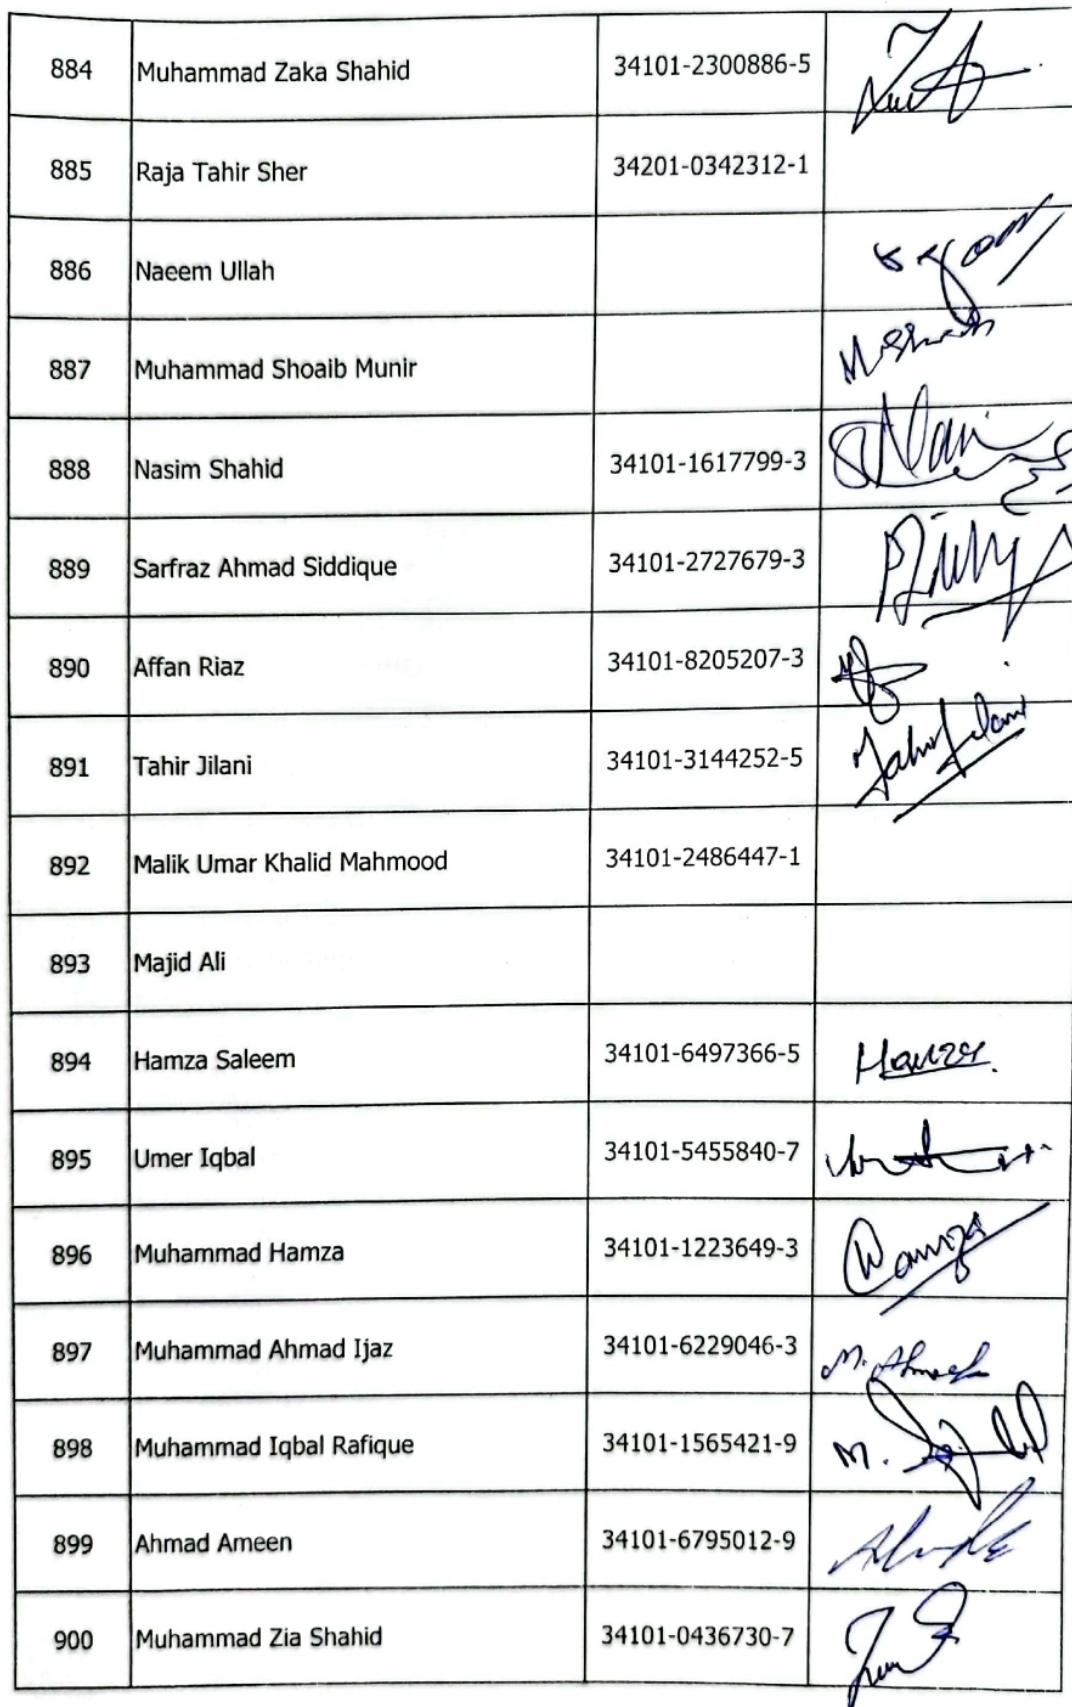 884 Muhammad Zaka Shahid 34101-2300886-5
885 Raja Tahir Sher 34201-0342312-1
886 Naeem Ullah
887 Muhammad Shoaib Munir
888 Nasim Shahid 34101-1617799-3
889 Sarfraz Ahmad Siddique 34101-2727679-3
890 Affan Riaz 34101-8205207-3
891 Tahir Jilani 34101-3144252-5 Tahir Jilani
892 Malik Umar Khalid Mahmood 34101-2486447-1
893 Majid Ali
894 Hamza Saleem 34101-6497366-5 Hamza
895 Umer Iqbal 34101-5455840-7
896 Muhammad Hamza 34101-1223649-3 Hamza
897 Muhammad Ahmad Ijaz 34101-6229046-3 M. Ahmad
898 Muhammad Iqbal Rafique 34101-1565421-9 M.
899 Ahmad Ameen 34101-6795012-9
900 Muhammad Zia Shahid 34101-0436730-7